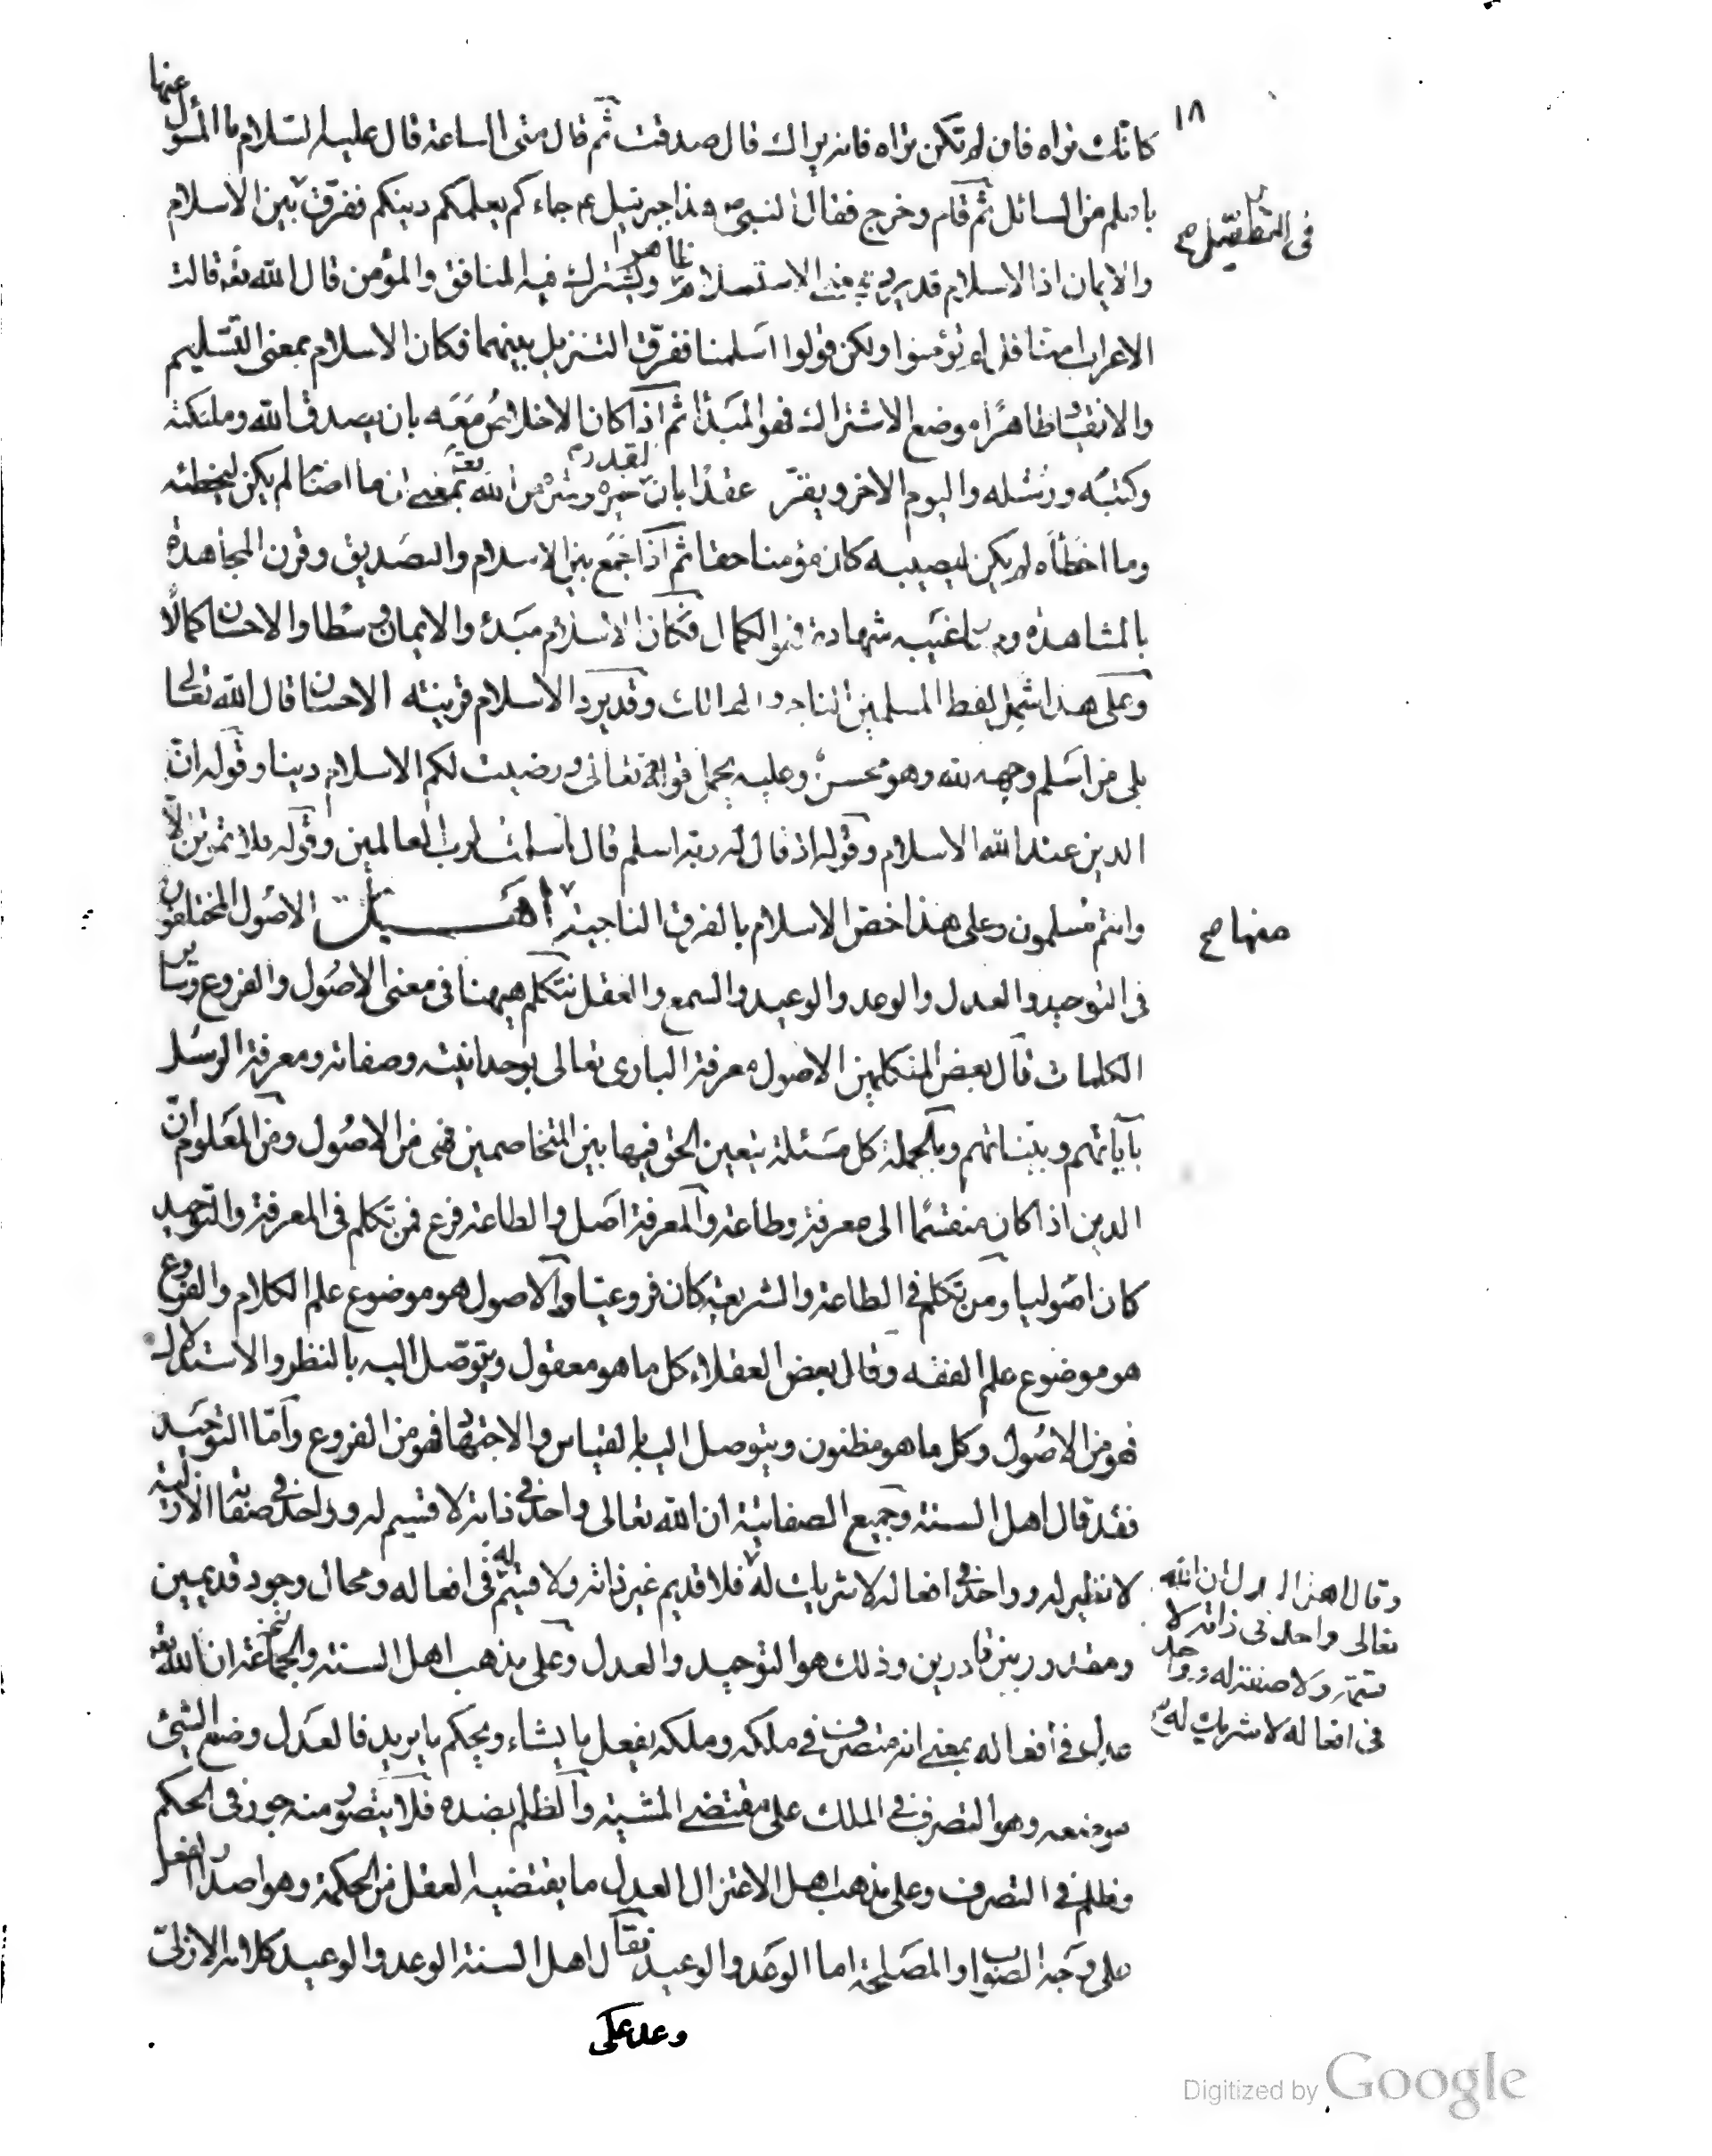 ١٨
عنها
كانك تراه فان لم تكن تراه فانه يراك قال صدقت ثم قال متى الساعة قال عليه السلام ما المسؤل
باعلم من السائل ثم قام وخرج فقال النبي ص هذا جبرئيل ع م جاءكم يعلمكم دينكم ففرق بين الاسلام
في التفصيل
والايمان اذ الاسلام قد يرد بمعنى الاستسلام ظاهرا ويشترك فيه المنافق والمؤمن قال الله تعه قالت
الاعراب امنا قل لم تؤمنوا ولكن قولوا اسلمنا ففرق التنزيل بينهما فكان الاسلام بمعنى التسليم
والانقياد ظاهرًا موضع الاشتراك فهو المبدأ ثم اذا كان الاخلاص معه بان يصدق الله وملئكته
وكتبه ورسله واليوم الاخر ويقر عقدًا بان القدر خيره وشره من الله تعه بمعنى ان ما اصابه لم يكن ليخطئه
وما اخطأه لم يكن ليصيبه كان مؤمنا حقا ثم اذا جمع بين الاسلام والتصديق وقرن المجاهدة
بالمشاهدة و غيبه شهادة فهو الكمال فكان الاسلام مبدئ والايمان وسطا والاحسان كمالًا
وعلى هذا شمل لفظ المسلمين الناجى والهالك وقد يرد الاسلام قرينته الاحسان قال الله تعالى
بلى من اسلم وجهه لله وهو محسن وعليه يحمل قوله تعالى ورضيت لكم الاسلام دينا وقوله ان
الدين عند الله الاسلام وقوله اذ قال له ربه اسلم قال اسلمت لرب العالمين وقوله فلا تموتن الا
وانتم مسلمون وعلى هذا خص الاسلام بالفرق الناجية اهــل الاصول المختلفون
منها
في التوحيد والعدل والوعد والوعيد والسمع والعقل نتكلم ههنا في معنى الاصول والفروع وساير
الكلمات قال بعض المتكلمين الاصول معرفة البارى تعالى بوحدانيته وصفاته ومعرفة الرسل
بآياتهم وبيناتهم وبالجملة كل مسئلة يتعين الحق فيها بين المتخاصمين فهى من الاصول ومن المعلوم ان
الدين اذا كان منقسمًا الى معرفة وطاعة والمعرفة اصل والطاعة فرع فمن تكلم في المعرفة والتوحيد
كان اصوليا ومن تكلم في الطاعة والشريعة كان فروعيا والاصول هو موضوع علم الكلام والفروع
هو موضوع علم الفقه وقال بعض العقلاء كل ما هو معقول ويتوصل اليه بالنظر والاستدلال
فهو من الاصول وكل ما هو مظنون ويتوصل اليه بالقياس والاجتهاد فهو من الفروع وأما التوحيد
فقد قال اهل السنة وجميع الصفاتية ان الله تعالى واحد في ذاته لا قسيم له وواحد في صفاته الازلية
لا نظير له وواحد في افعاله لا شريك له فلا قديم غير ذاته ولا قسيم له في افعاله ومحال وجود قديمين
وقال اهل العدل ان الله
تعالى واحد في ذاته لا
قسمة ولا صفة له وواحد
في افعاله لا شريك له
ومقدور بين قادرين وذلك هو التوحيد والعدل وعلى مذهب اهل السنة والجماعة ان الله تعه
عدل في افعاله بمعنى انه متصرف في ملكه وملكه يفعل ما يشاء ويحكم ما يريد فالعدل وضع الشئ
موضعه وهو التصرف في الملك على مقتضى المشية والظلم بضده فلا يتصور منه جور في الحكم
وظلم في التصرف وعلى مذهب اهل الاعتزال العدل ما يقتضيه العقل من الحكمة وهو اصدار الفعل
على وجه الصواب والمصلحة اما الوعد والوعيد فقال اهل السنة الوعد والوعيد كلامه الازلى
وعد على
Digitized by Google